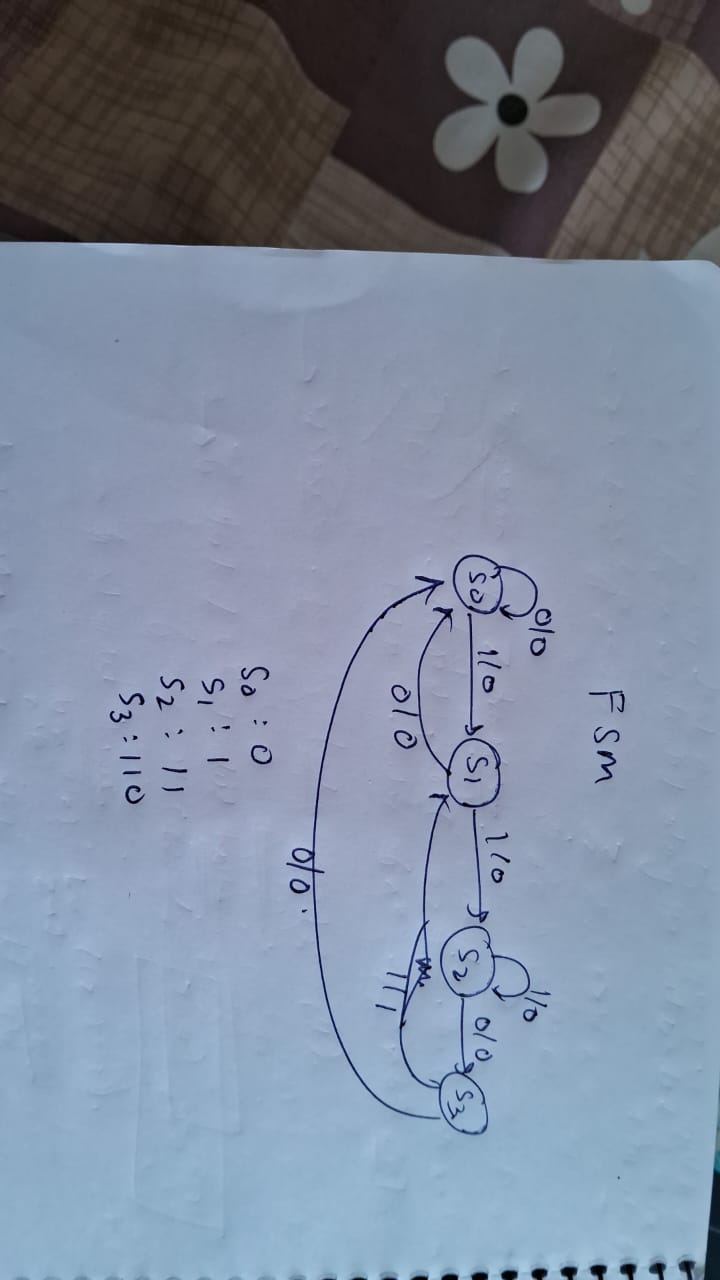 FSM
0/0
1/0
S0
1/0
S1
1/0
S2
0/0
S3
0/0
1/1
0/0
S0 : 0
S1 : 1
S2 : 11
S3 : 110